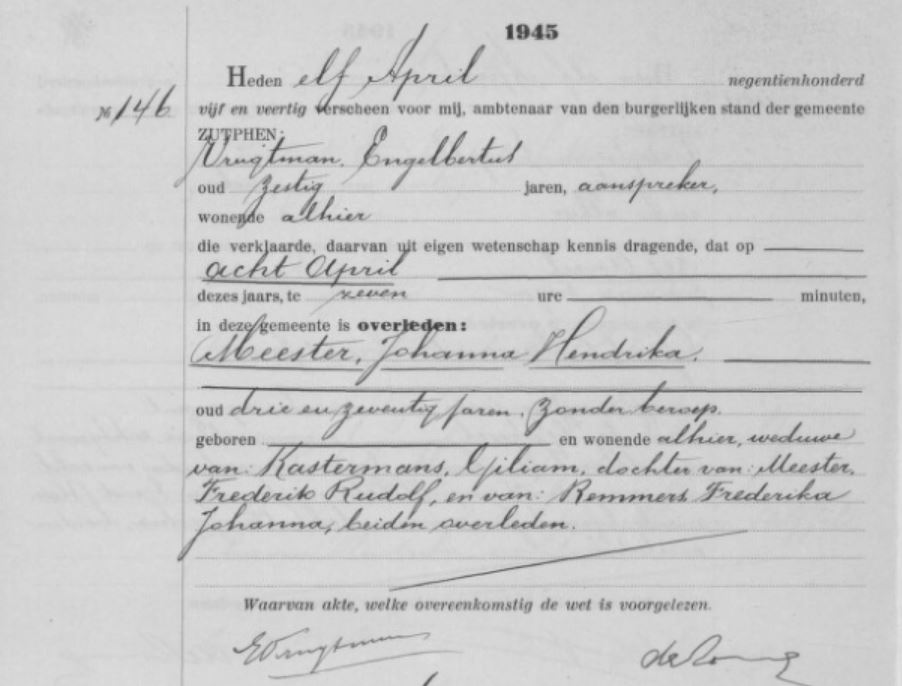 1945
Heden elf April negentienhonderd
№ 146 vijf en veertig verscheen voor mij, ambtenaar van den burgerlijken stand der gemeente
ZUTPHEN:
Vrugtman, Engelbertus
oud zestig jaren, aanspreker,
wonende alhier
die verklaarde, daarvan uit eigen wetenschap kennis dragende, dat op
acht April
dezes jaars, te zeven ure minuten,
in deze gemeente is overleden:
Meester, Johanna Hendrika.
oud drie en zeventig jaren, zonder beroep.
geboren en wonende alhier, weduwe
van: Kastermans, Giliam, dochter van: Meester,
Frederik Rudolf, en van: Remmers Frederika
Johanna, beiden overleden.
Waarvan akte, welke overeenkomstig de wet is voorgelezen.
EVrugtman